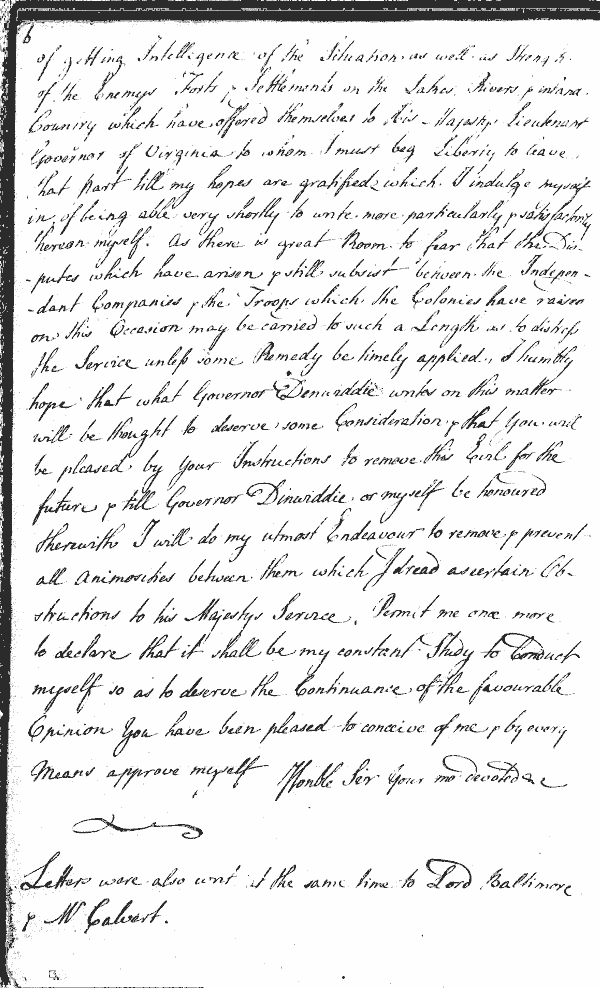 6
of getting Intelligence of the Situation as well as Strength
of the Enemys Forts & Settlements on the Lakes Rivers & inland
Country which have offered themselves to his Majestys Lieutenant
Governor of Virginia to whom I must beg Liberty to leave
that part till my hopes are gratified which I indulge myself
in of being able very shortly to write more particularly & satisfactorily
hereon myself. As there is great Room to fear that the Dis-
-putes which have arisen & still subsist between the Indepen-
-dant Companies & the Troops which the Colonies have raised
on this Occasion may be carried to such a Length as to distress
the Service unless some Remedy be timely applied, I humbly
hope that what Governor Denwiddie writes on this matter
will be thought to deserve some Consideration & that You will
be pleased by Your Instructions to remove this Evil for the
future & till Governor Dinwiddie or myself be honoured
therewith I will do my utmost Endeavour to remove & prevent
all animosities between them which I dread as certain Ob-
structions to his Majestys Service. Permit me once more
to declare that it shall be my constant Study to Conduct
myself so as to deserve the Continuance of the favourable
Opinion You have been pleased to conceive of me & by every
Means approve myself Honble Sir Your mo devoted &c
Letters were also writ at the same time to Lord Baltimore
& Mr Calvert.